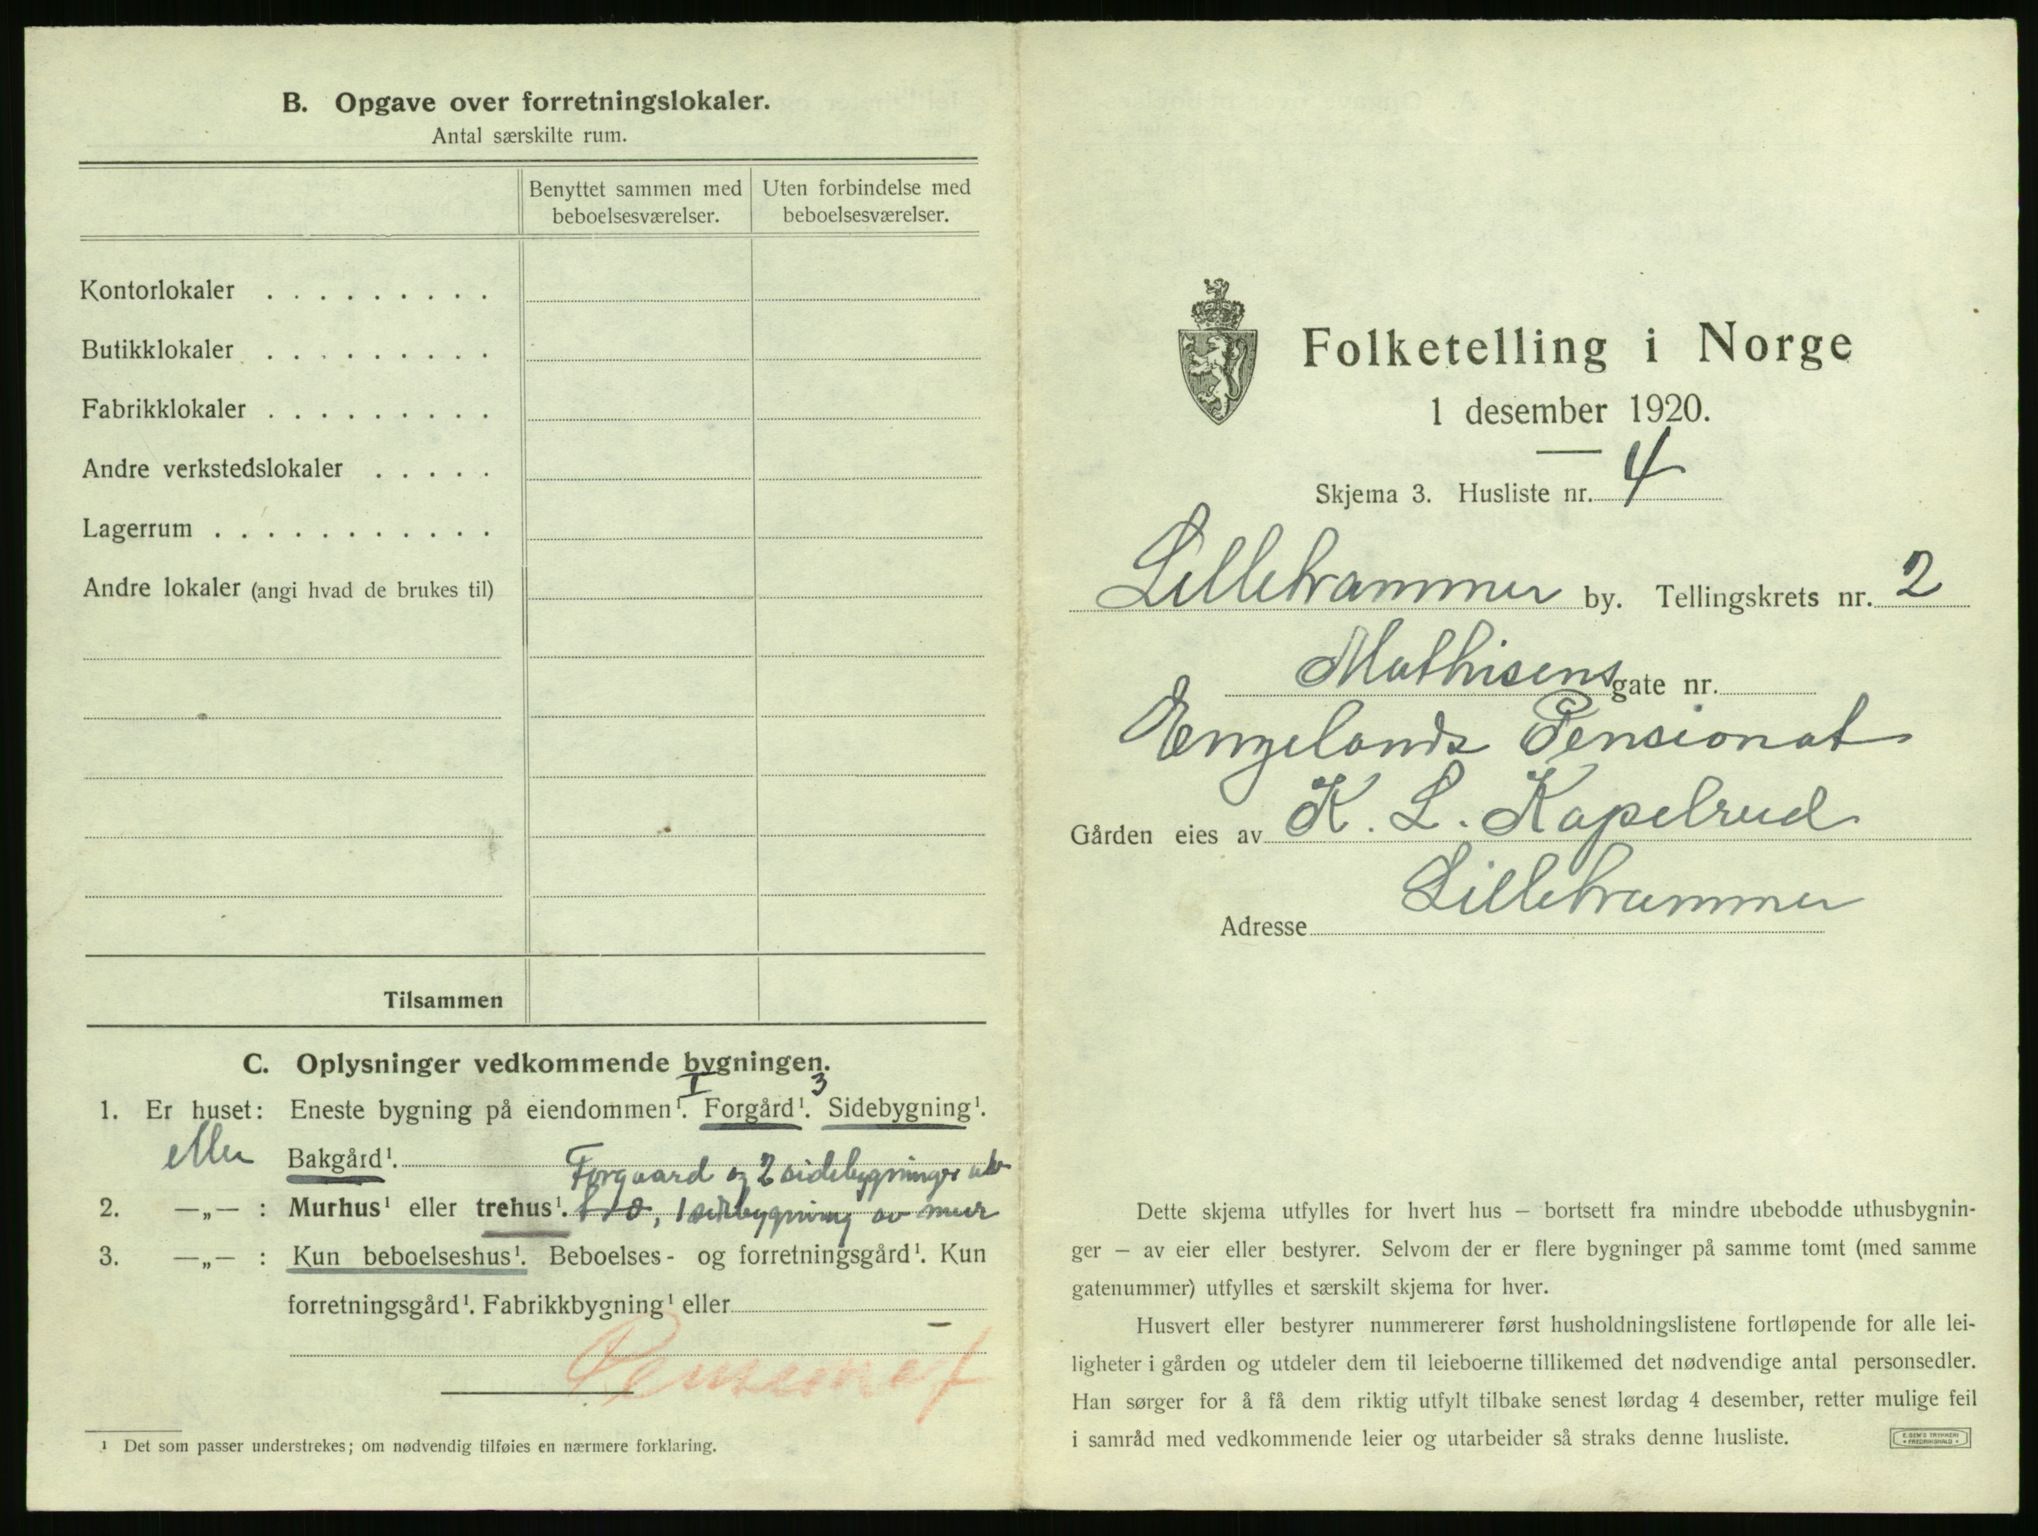 B. Opgave over forretningslokaler.
Antal særskilte rum.
Benyttet sammen med beboelsesværelser.
Uten forbindelse med beboelsesværelser.
Kontorlokaler . . . . . . . . .
Butikklokaler . . . . . . . . .
Fabrikklokaler . . . . . . . . .
Andre verkstedslokaler . . . . .
Lagerrum . . . . . . . . . . .
Andre lokaler (angi hvad de brukes til)
Tilsammen
C. Oplysninger vedkommende bygningen.
I 3
1. Er huset: Eneste bygning på eiendommen¹. Forgård¹. Sidebygning¹.
eller Bakgård¹. Forgaard og 2 sidebygninger av
2. —„— : Murhus¹ eller trehus¹. tre, 1 sidebygning av mur
3. —„— : Kun beboelseshus¹. Beboelses- og forretningsgård¹. Kun
forretningsgård¹. Fabrikkbygning¹ eller
Pensionat
¹ Det som passer understrekes; om nødvendig tilføies en nærmere forklaring.
Folketelling i Norge
1 desember 1920.
Skjema 3. Husliste nr. 4
Lillehammer by. Tellingskrets nr. 2
Mathisens gate nr.
Engelands Pensionat
Gården eies av K. L. Kapelrud
Adresse Lillehammer
Dette skjema utfylles for hvert hus – bortsett fra mindre ubebodde uthusbygnin-
ger – av eier eller bestyrer. Selvom der er flere bygninger på samme tomt (med samme
gatenummer) utfylles et særskilt skjema for hver.
Husvert eller bestyrer nummererer først husholdningslistene fortløpende for alle lei-
ligheter i gården og utdeler dem til leieboerne tillikemed det nødvendige antal personsedler.
Han sørger for å få dem riktig utfylt tilbake senest lørdag 4 desember, retter mulige feil
i samråd med vedkommende leier og utarbeider så straks denne husliste.
E. SEM'S TRYKKERI
• FREDRIKSHALD •